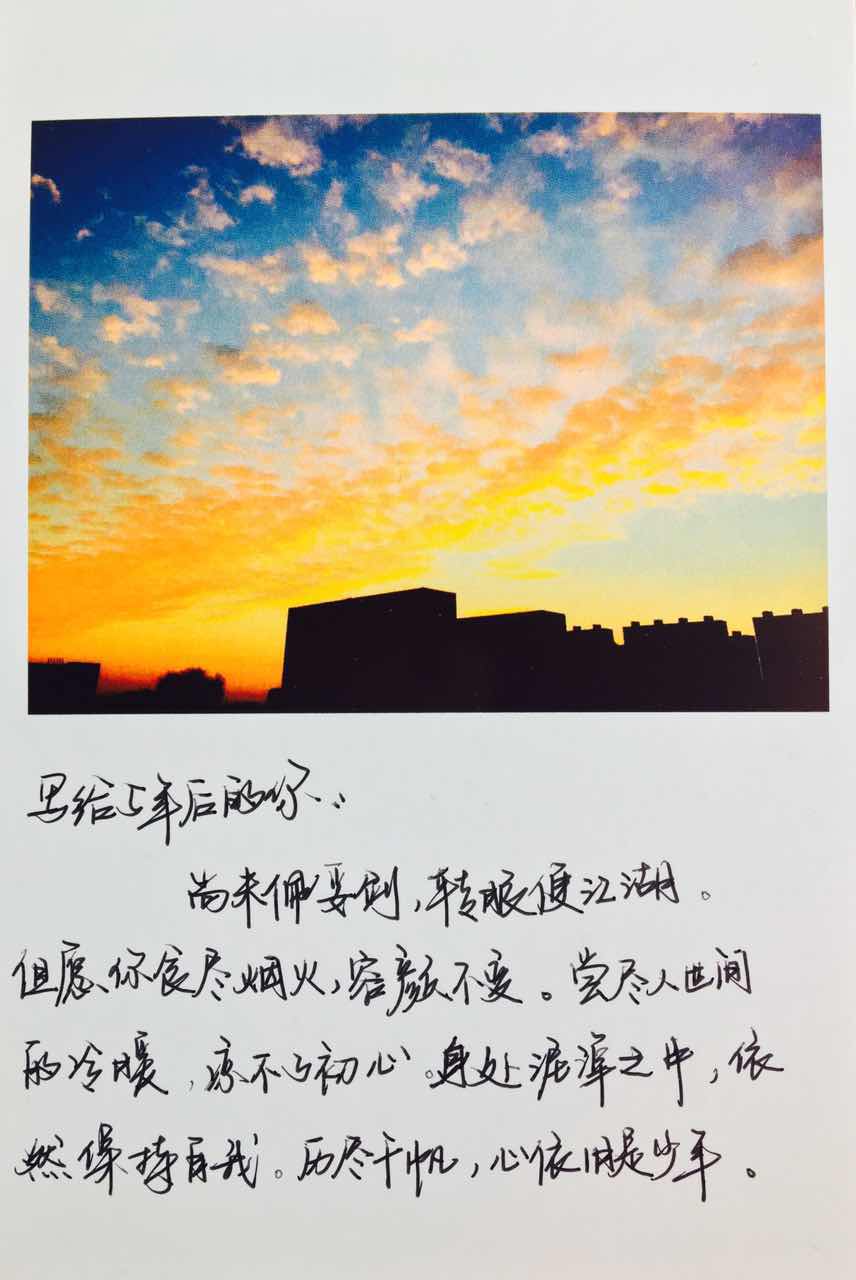 写给5年后的你..
尚未佩妥剑,转眼便江湖。
但愿,你食尽烟火,容颜不变。尝尽人世间
的冷暖,亦不忘初心。身处泥潭之中,依
然保持自我。历尽千帆,心依旧是少年。